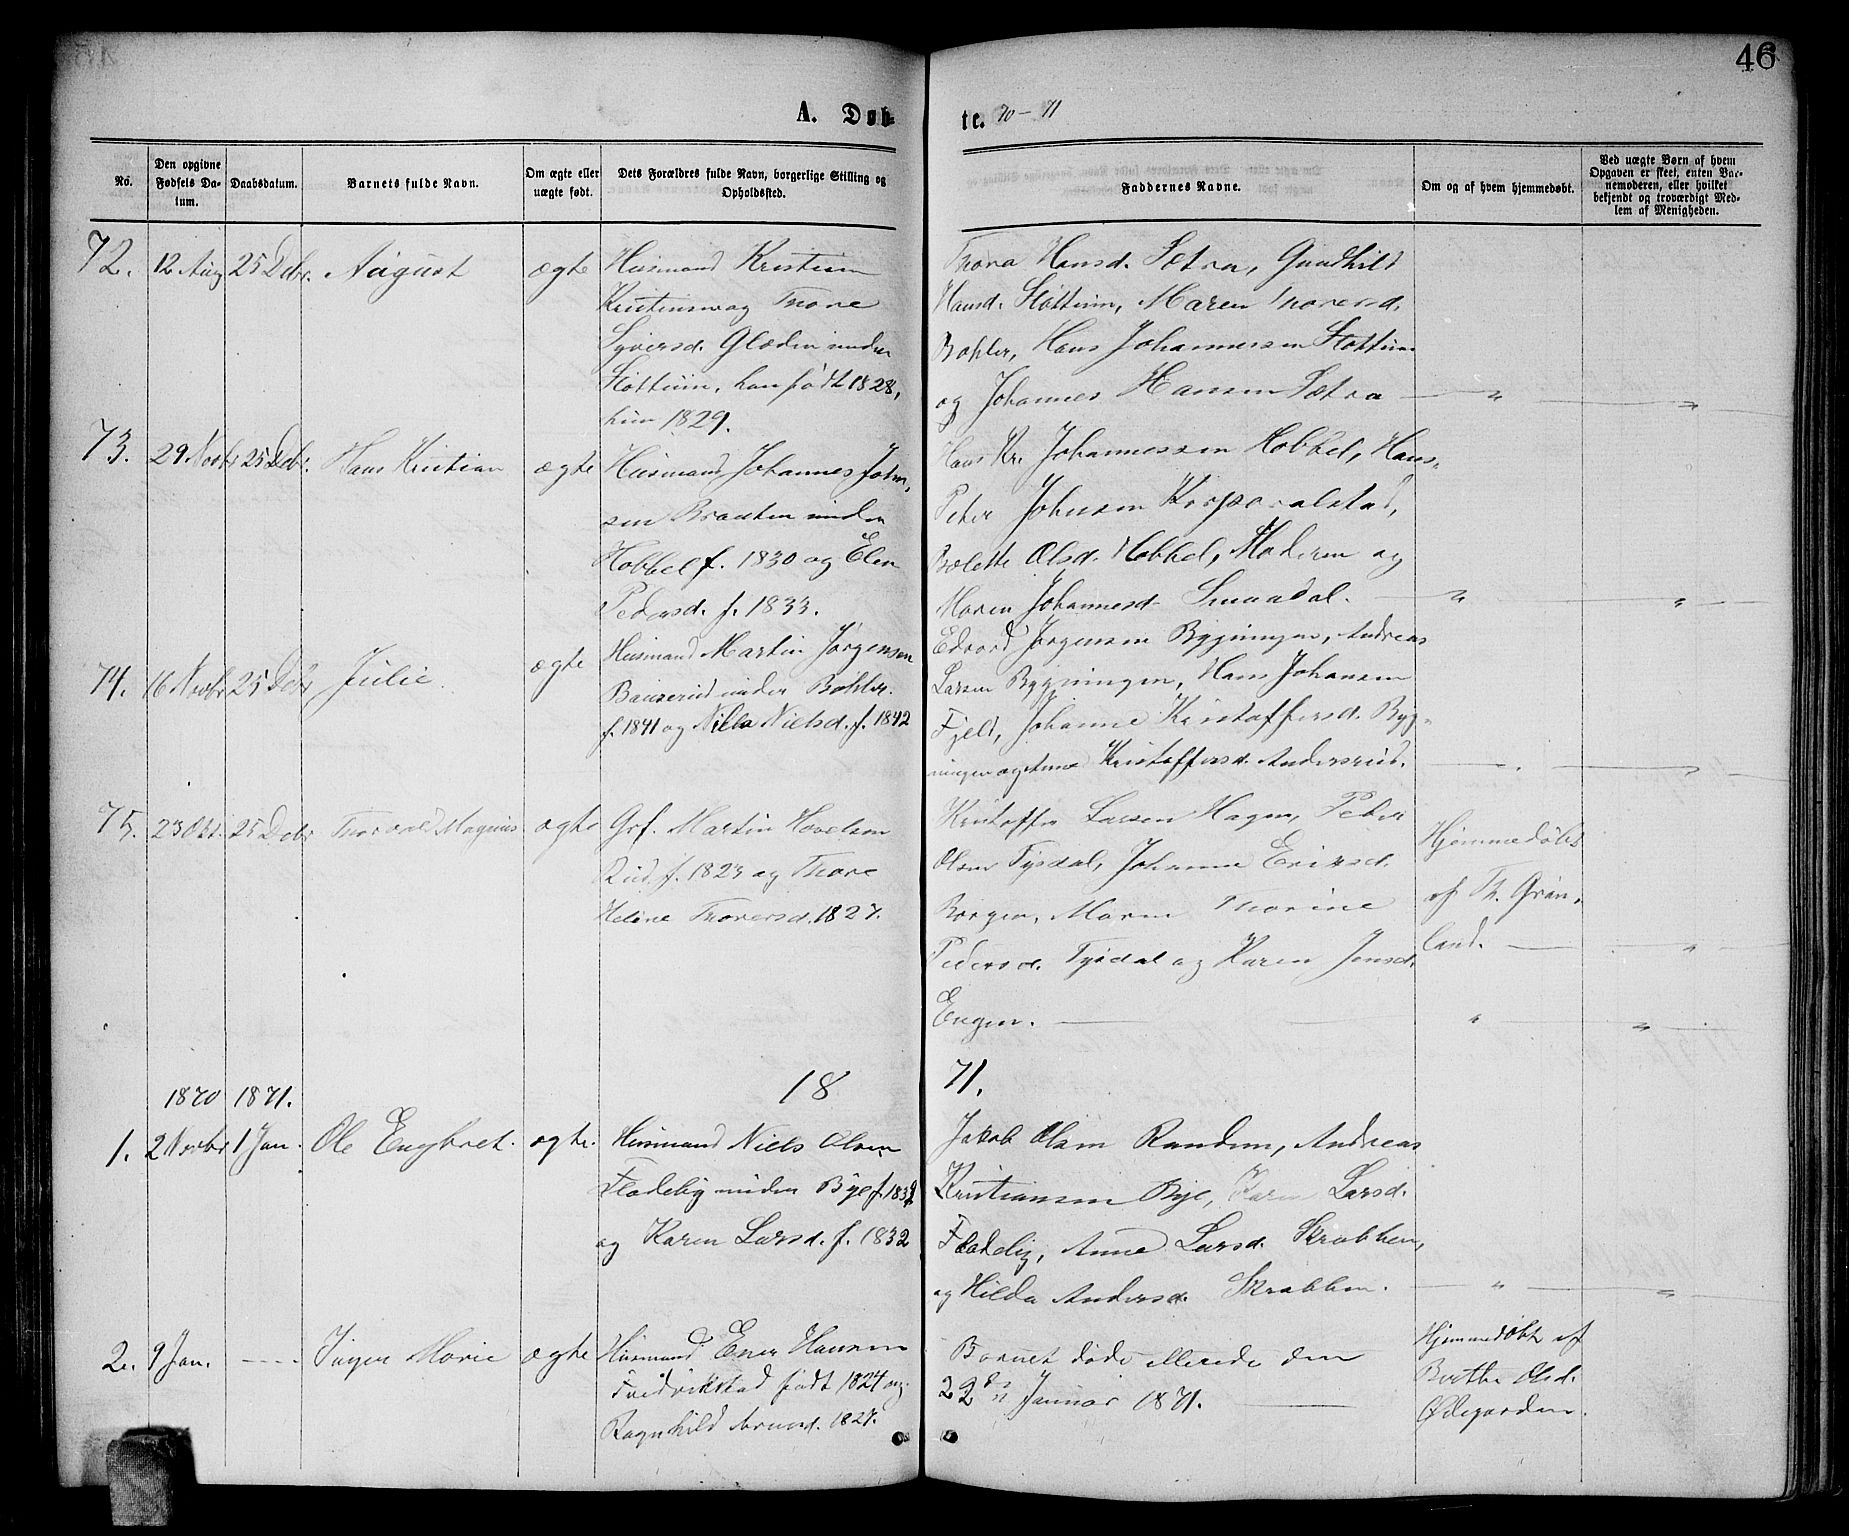 46
A. Døb-
te. 70-71
No.
Den opgivne Fødsels Da-
tum.
Daabsdatum.
Barnets fulde Navn.
Om ægte eller
uægte født.
Dets Forældres fulde Navn, borgerlige Stilling og
Opholdssted.
Faddernes Navne.
Om og af hvem hjemmedøbt.
Ved uægte Børn af hvem
Opgaven er skeet, enten Bar-
nemoderen, eller hvilket
bekjendt og troværdigt Med-
lem af Menigheden.
72. 12 Aug 25 Debr. August ægte
Husmand Kristian
Kristiansen og Thore
Syversd. Gladin under
Støttum, han født 1828,
hun 1829.
Thora Hansd. Sætra, Gundhild
Hansd. Støttum, Maren Thoresd.
Bøhler, Hans Johannessen Støttum
og Johannes Hansen Sætra — „ — „ —
73. 29 Novbr 25 Debr. Hans Kristian ægte
Husmand Johannes John-
sen Braaten under
Hobbel f. 1830 og Elen
Pedersd. f. 1833.
Hans Kr. Johannessen Hobbel, Hans
Peter Johnsen Korporalstad,
Bolette Olsd. Hobbel, Moderen og
Maren Johannesd. Smaadal. — „ — „ —
74. 16 Novbr 25 Debr Julie. ægte
Husmand Martin Jørgensen
Bauserud under Bøhler.
f. 1841 og Nilla Nielsd. f. 1842
Edvard Jørgensen Bygningen, Andreas
Larsen Bygningen, Hans Johansen
Fjeld, Johanne Kristoffersd. Byg-
ningen og Anne Kristoffersd. Andersrud.
75. 23 Okt. 25 Debr Thorvald Magnus ægte
Grf. Martin Hovelsen
Rud f. 1823 og Thore
Helene Thoresd. 1827.
Kristoffer Larsen Hagen, Peter
Olsen Tysdal, Johanne Ericsd.
Borgen, Maren Thorine
Pedersd. Tysdal og Karen Jensd.
Engen. —
Hjemmedøbt
af Th. Grøn-
land. —
1870 1871. 18 71.
1. 2 Novbr 1 Jan. Ole Engbret. ægte.
Husmand Niels Olsen
Fladeby under Bye f. 1832
og Karen Larsd. f. 1832
Jakob Olsen Randem, Andreas
Kristiansen Bye, Karen Larsd.
Fladeby, Anne Larsd. Skrabben,
og Hilda Andersd. Skrabben. — „ — „ —
2. 9 Jan. ---- Inger Marie ægte
Husmand Ener Hansen
Fredrikstad født 1824 og
Ragnhild Arnesd. 1827.
Barnet døde allerede den
22de Januar 1871. —
Hjemmedøbt af
Berthe Olsd.
Ødegarden.